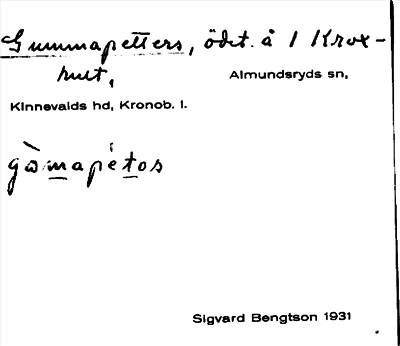 Gummapetters, ödet. å 1 Krox-
hult,
Almundsryds sn,
Kinnevalds hd, Kronob. l.
gòmapétos
Sigvard Bengtson 1931